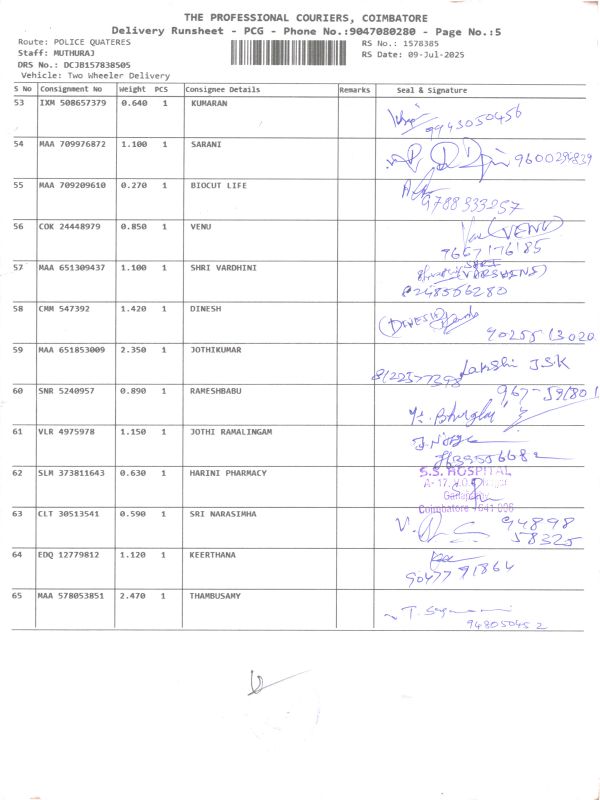 THE PROFESSIONAL COURIERS, COIMBATORE
Delivery Runsheet - PCG - Phone No.:9047080280 - Page No.:5
Route: POLICE QUATERES RS No.: 1578385
Staff: MUTHURAJ RS Date: 09-Jul-2025
DRS No.: DCJ8157838505
Vehicle: Two Wheeler Delivery
S No Consignment No Weight PCS Consignee Details Remarks Seal & Signature
53 IXM 508657379 0.640 1 KUMARAN
9943050456
54 MAA 709976872 1.100 1 SARANI
9600294839
55 MAA 709209610 0.270 1 BIOCUT LIFE
9788333257
56 COK 24448979 0.850 1 VENU
(VENU)
9667176185
57 MAA 651309437 1.100 1 SHRI VARDHINI
8248556280
58 CMM 547392 1.420 1 DINESH
(DINESH)
90255 13020
59 MAA 651853009 2.350 1 JOTHIKUMAR
J.S.K
60 SNR 5240957 0.890 1 RAMESHBABU
61 VLR 4975978 1.150 1 JOTHI RAMALINGAM
62 SLM 373811643 0.630 1 HARINI PHARMACY
S.S. HOSPITAL
Coimbatore
63 CLT 30513541 0.590 1 SRI NARASIMHA
94898
58325
64 EDQ 12779812 1.120 1 KEERTHANA
9047791864
65 MAA 578053851 2.470 1 THAMBUSAMY
948050452